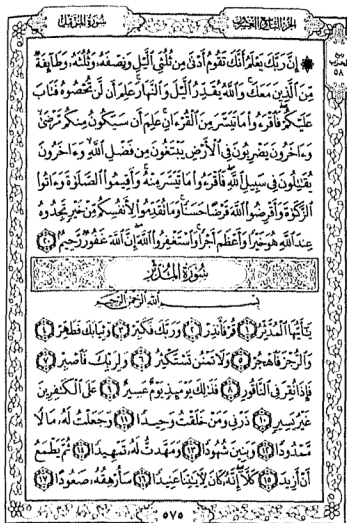 سُورَةُ المُزَّمِّل
الجُزْءُ التَّاسِعُ وَالعِشْرُونَ
ربع
الحزب
٥٨
۞ إِنَّ رَبَّكَ يَعْلَمُ أَنَّكَ تَقُومُ أَدْنَىٰ مِن ثُلُثَيِ ٱلَّيْلِ وَنِصْفَهُۥ وَثُلُثَهُۥ وَطَآئِفَةٌ
مِّنَ ٱلَّذِينَ مَعَكَۚ وَٱللَّهُ يُقَدِّرُ ٱلَّيْلَ وَٱلنَّهَارَۚ عَلِمَ أَن لَّن تُحْصُوهُ فَتَابَ
عَلَيْكُمْۖ فَٱقْرَءُوا۟ مَا تَيَسَّرَ مِنَ ٱلْقُرْءَانِۚ عَلِمَ أَن سَيَكُونُ مِنكُم مَّرْضَىٰ
وَءَاخَرُونَ يَضْرِبُونَ فِى ٱلْأَرْضِ يَبْتَغُونَ مِن فَضْلِ ٱللَّهِۙ وَءَاخَرُونَ
يُقَٰتِلُونَ فِى سَبِيلِ ٱللَّهِۖ فَٱقْرَءُوا۟ مَا تَيَسَّرَ مِنْهُۚ وَأَقِيمُوا۟ ٱلصَّلَوٰةَ وَءَاتُوا۟
ٱلزَّكَوٰةَ وَأَقْرِضُوا۟ ٱللَّهَ قَرْضًا حَسَنًاۚ وَمَا تُقَدِّمُوا۟ لِأَنفُسِكُم مِّنْ خَيْرٍ تَجِدُوهُ
عِندَ ٱللَّهِ هُوَ خَيْرًا وَأَعْظَمَ أَجْرًاۚ وَٱسْتَغْفِرُوا۟ ٱللَّهَۖ إِنَّ ٱللَّهَ غَفُورٌ رَّحِيمٌۢ ٢٠
سُورَةُ المُدَّثِّر
بِسْمِ ٱللَّهِ ٱلرَّحْمَٰنِ ٱلرَّحِيمِ
يَٰٓأَيُّهَا ٱلْمُدَّثِّرُ ١ قُمْ فَأَنذِرْ ٢ وَرَبَّكَ فَكَبِّرْ ٣ وَثِيَابَكَ فَطَهِّرْ ٤
وَٱلرُّجْزَ فَٱهْجُرْ ٥ وَلَا تَمْنُن تَسْتَكْثِرُ ٦ وَلِرَبِّكَ فَٱصْبِرْ ٧
فَإِذَا نُقِرَ فِى ٱلنَّاقُورِ ٨ فَذَٰلِكَ يَوْمَئِذٍ يَوْمٌ عَسِيرٌ ٩ عَلَى ٱلْكَٰفِرِينَ
غَيْرُ يَسِيرٍ ١٠ ذَرْنِى وَمَنْ خَلَقْتُ وَحِيدًا ١١ وَجَعَلْتُ لَهُۥ مَالًا
مَّمْدُودًا ١٢ وَبَنِينَ شُهُودًا ١٣ وَمَهَّدتُّ لَهُۥ تَمْهِيدًا ١٤ ثُمَّ يَطْمَعُ
أَنْ أَزِيدَ ١٥ كَلَّآۖ إِنَّهُۥ كَانَ لِءَايَٰتِنَا عَنِيدًا ١٦ سَأُرْهِقُهُۥ صَعُودًا ١٧
٥٧٥